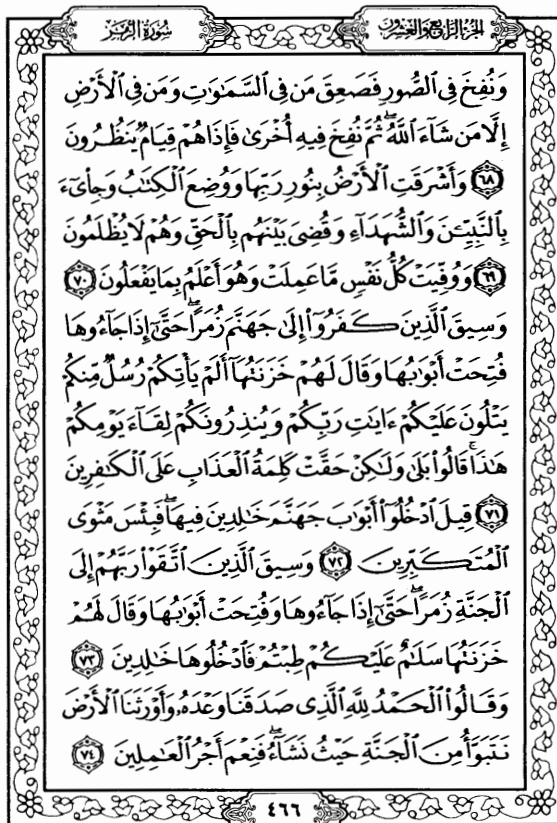 الجزء الرابع والعشرون
سورة الزمر
وَنُفِخَ فِي الصُّورِ فَصَعِقَ مَن فِي السَّمَٰوَٰتِ وَمَن فِي الْأَرْضِ
إِلَّا مَن شَآءَ اللَّهُ ۖ ثُمَّ نُفِخَ فِيهِ أُخْرَىٰ فَإِذَا هُمْ قِيَامٌ يَنظُرُونَ
٦٨ وَأَشْرَقَتِ الْأَرْضُ بِنُورِ رَبِّهَا وَوُضِعَ الْكِتَٰبُ وَجِا۟يٓءَ
بِالنَّبِيِّۦنَ وَالشُّهَدَآءِ وَقُضِيَ بَيْنَهُم بِالْحَقِّ وَهُمْ لَا يُظْلَمُونَ
٦٩ وَوُفِّيَتْ كُلُّ نَفْسٍ مَّا عَمِلَتْ وَهُوَ أَعْلَمُ بِمَا يَفْعَلُونَ ٧٠
وَسِيقَ الَّذِينَ كَفَرُوٓا۟ إِلَىٰ جَهَنَّمَ زُمَرًا ۖ حَتَّىٰٓ إِذَا جَآءُوهَا
فُتِحَتْ أَبْوَٰبُهَا وَقَالَ لَهُمْ خَزَنَتُهَآ أَلَمْ يَأْتِكُمْ رُسُلٌ مِّنكُمْ
يَتْلُونَ عَلَيْكُمْ ءَايَٰتِ رَبِّكُمْ وَيُنذِرُونَكُمْ لِقَآءَ يَوْمِكُمْ
هَٰذَا ۚ قَالُوا۟ بَلَىٰ وَلَٰكِنْ حَقَّتْ كَلِمَةُ الْعَذَابِ عَلَى الْكَٰفِرِينَ
٧١ قِيلَ ادْخُلُوٓا۟ أَبْوَٰبَ جَهَنَّمَ خَٰلِدِينَ فِيهَا ۖ فَبِئْسَ مَثْوَى
الْمُتَكَبِّرِينَ ٧٢ وَسِيقَ الَّذِينَ اتَّقَوْا۟ رَبَّهُمْ إِلَى
الْجَنَّةِ زُمَرًا ۖ حَتَّىٰٓ إِذَا جَآءُوهَا وَفُتِحَتْ أَبْوَٰبُهَا وَقَالَ لَهُمْ
خَزَنَتُهَا سَلَٰمٌ عَلَيْكُمْ طِبْتُمْ فَادْخُلُوهَا خَٰلِدِينَ ٧٣
وَقَالُوا۟ الْحَمْدُ لِلَّهِ الَّذِي صَدَقَنَا وَعْدَهُۥ وَأَوْرَثَنَا الْأَرْضَ
نَتَبَوَّأُ مِنَ الْجَنَّةِ حَيْثُ نَشَآءُ ۖ فَنِعْمَ أَجْرُ الْعَٰمِلِينَ ٧٤
٤٦٦